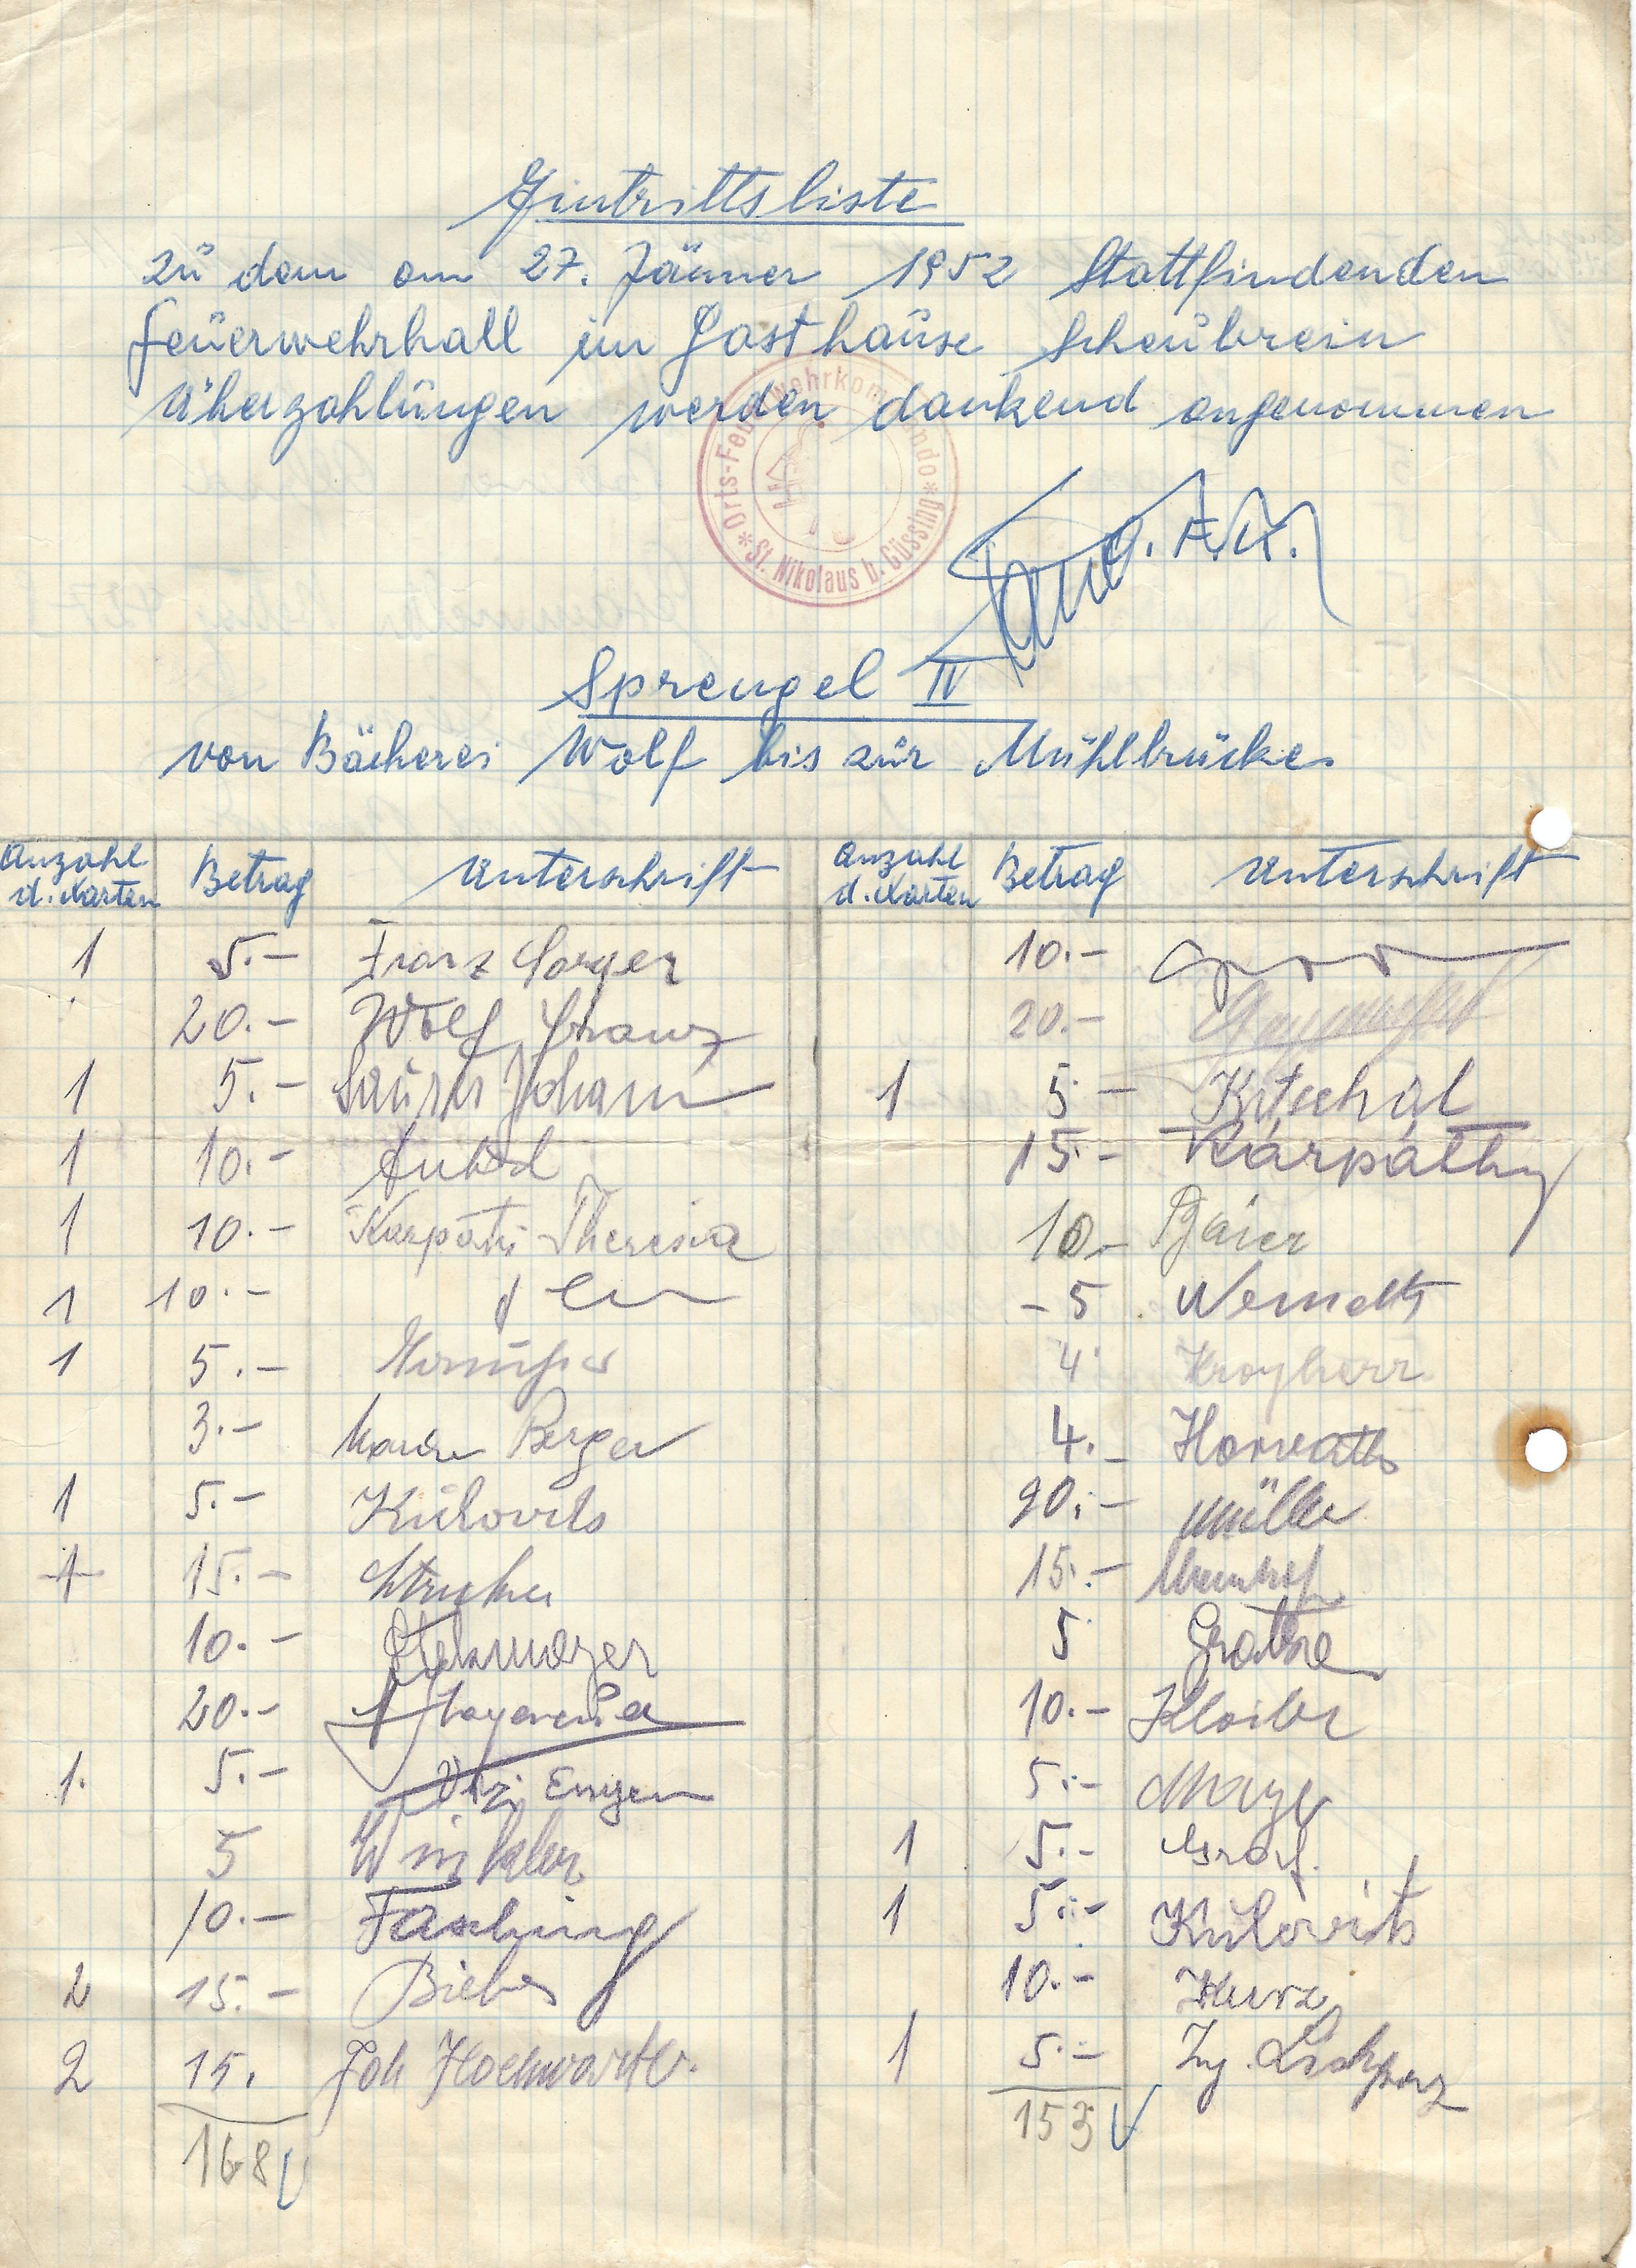 Eintrittsliste
zu dem am 27. Jänner 1952 Stattfindenden
Feuerwehrball im Gasthause Scheubrein
Überzahlungen werden dankend angenommen
* Orts-Feuerwehrkommando * St. Nikolaus b. Güssing
Sprengel II
von Bäckerei Wolf bis zur Mühlbrücke
Anzahl d. Karten Betrag Unterschrift
1 5.- Franz Sorger
20.- Wolf Franz
1 5.- Johann
1 10.-
1 10.- Karpati Theresia
1 10.-
1 5.-
3.- Maria Berger
1 5.- Kulovits
1 15.-
10.-
20.-
1. 5.- Eugen
5 Winkler
10.- Fasching
2 15.- Bieber
2 15. Joh Hochwarter
168
Anzahl d. Karten Betrag Unterschrift
10.-
20.-
1 5.-
15.- Kárpáthy
10.- Bajer
- 5 Nemeth
4
4.- Horvath
20.- Müller
15.-
5
10.- Kloiber
5.- Mayer
1 5.- Graf.
1 5.- Kulovits
10.- Kurz
1 5.-
153